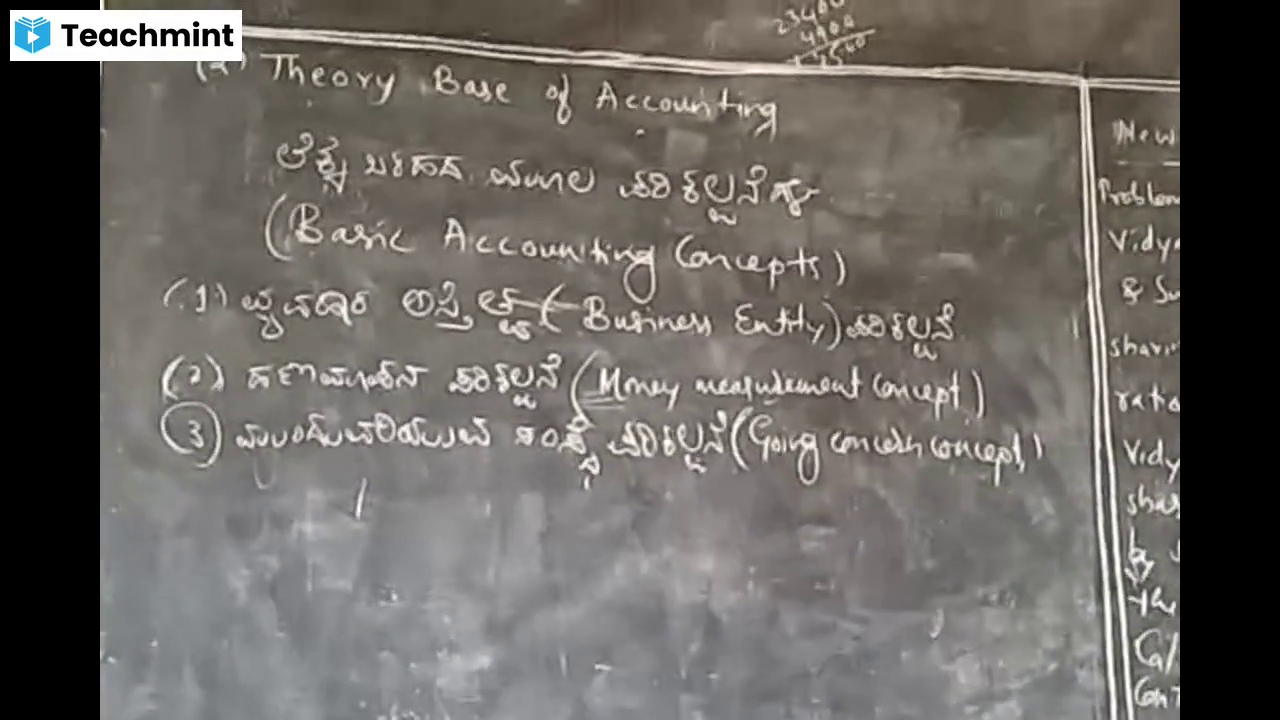 Teachmint
Theory Base of Accounting
ಲೆಕ್ಕ ಬರಹದ ಮೂಲ ಪರಿಕಲ್ಪನೆಗಳು
(Basic Accounting Concepts)
(1) ವ್ಯವಹಾರ ಅಸ್ತಿತ್ವ (Business Entity) ಪರಿಕಲ್ಪನೆ
(2) ಹಣಮಾಪನ ಪರಿಕಲ್ಪನೆ (Money measurement concept)
(3) ಮುಂದುವರಿಯುವ ಸಂಸ್ಥೆ ಪರಿಕಲ್ಪನೆ (Going concern concept)
New
Problem
Vidy
&
sharin
ratio
Vidy
shar